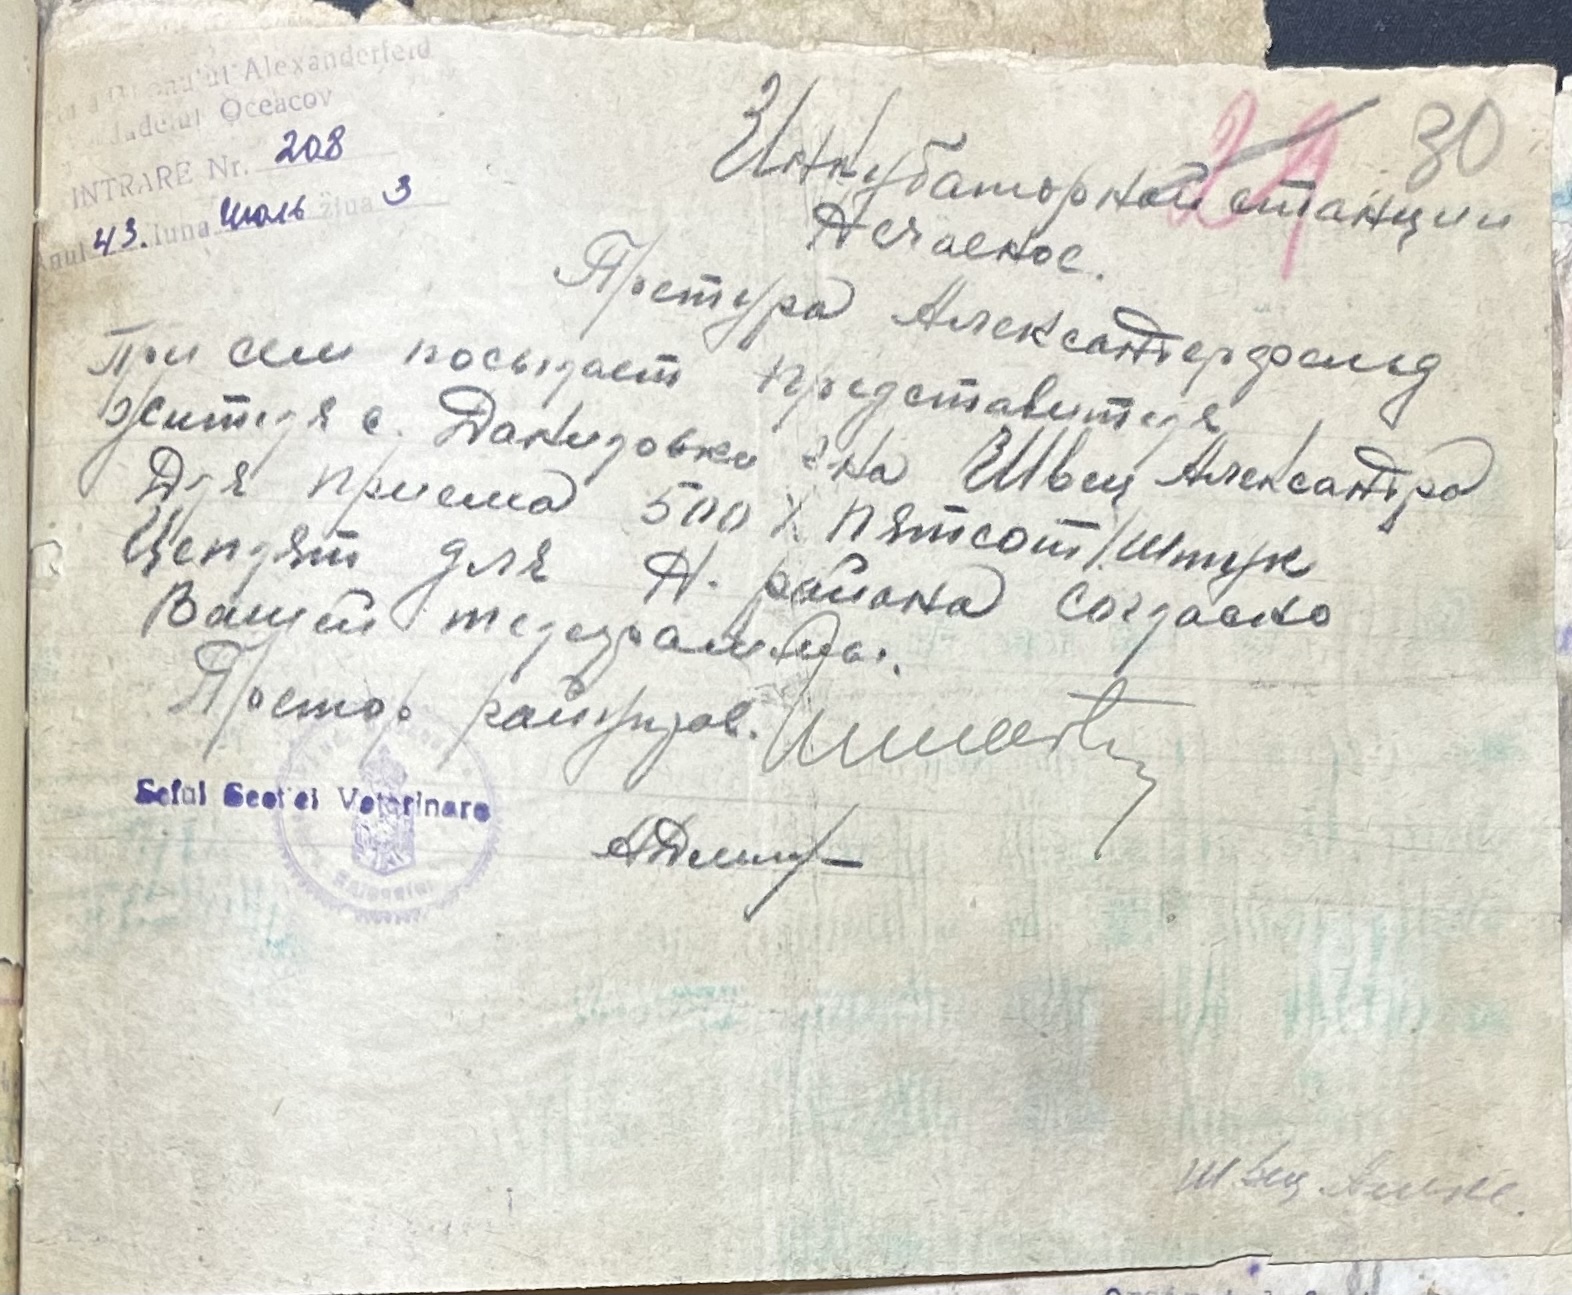 Alexanderfeld
Oceacov
INTRARE Nr. 208
Anul 43. luna Июль ziua 3
29 30
Инкубаторной станции
Нечаеное.
Претура Александерфельд
При сем посылает представителя
жителя с. Даниловки г-на Швец Александра
Для приема 500 /пятсот/ штук
Цеплят для А. района согласно
Вашей телеграммы.
Претор райуправ.
Seful Sectiei Veterinare
Швец Алекс.